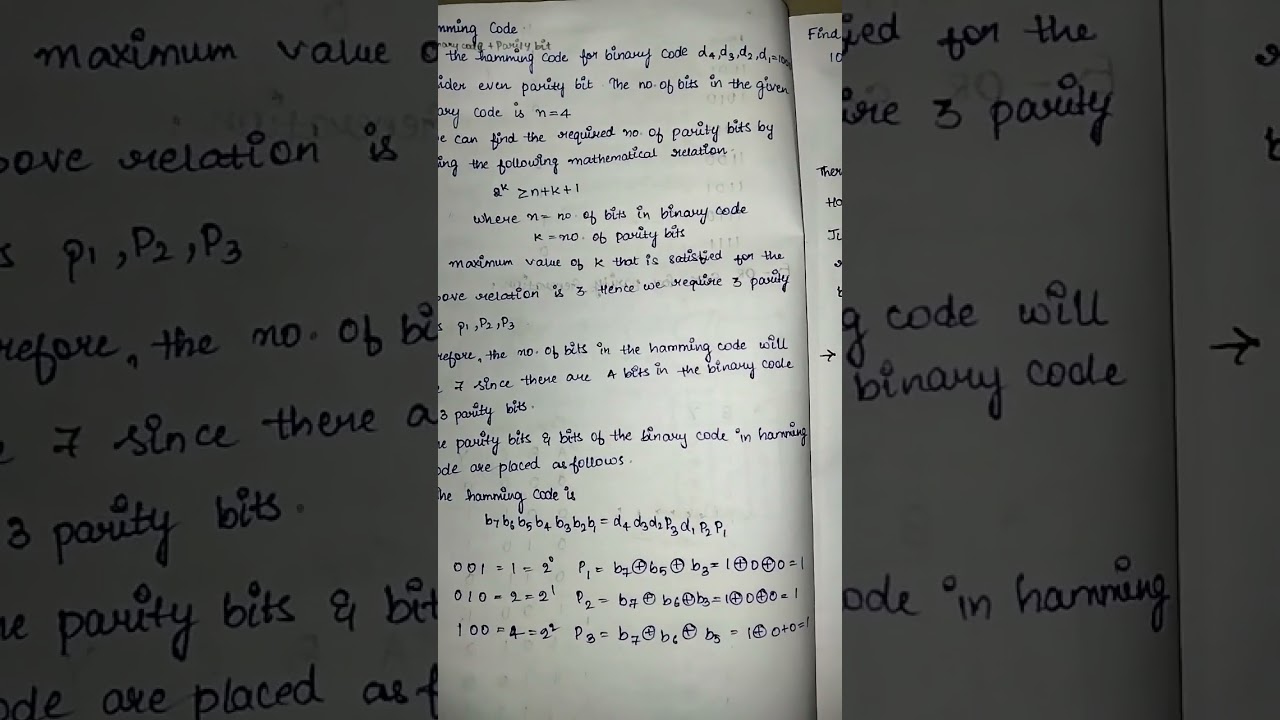 mming Code
ary code + Parity bit
the hamming code for binary code d4,d3,d2,d1=1000
ider even parity bit. The no. of bits in the given
ary code is n=4
e can find the required no. of parity bits by
ing the following mathematical relation.
2^k ≥ n+k+1
where n = no. of bits in binary code
k = no. of parity bits
maximum value of k that is satisfied for the
bove relation is 3 Hence we require 3 parity
s P1,P2,P3
refore, the no. of bits in the hamming code will
e 7 since there are 4 bits in the binary code
3 parity bits.
he parity bits & bits of the binary code in hamming
ode are placed as follows.
the hamming code is
b7b6b5b4b3b2b1 = d4d3d2P3d1P2P1
001 = 1 = 2^0 P1 = b7⊕b5⊕b3 = 1⊕0⊕0=1
010 = 2 = 2^1 P2 = b7⊕b6⊕b3=1⊕0⊕0=1
100 = 4 = 2^2 P3 = b7⊕b6⊕b5 = 1⊕0+0=1
Find
10
Ther
→
maximum value o
bove relation is
s P1,P2,P3
refore, the no. of bi
e 7 since there a
3 parity bits.
he parity bits & bit
ode are placed as f
ied for the
ire 3 parity
g code will
binary code
→
ode in hamming